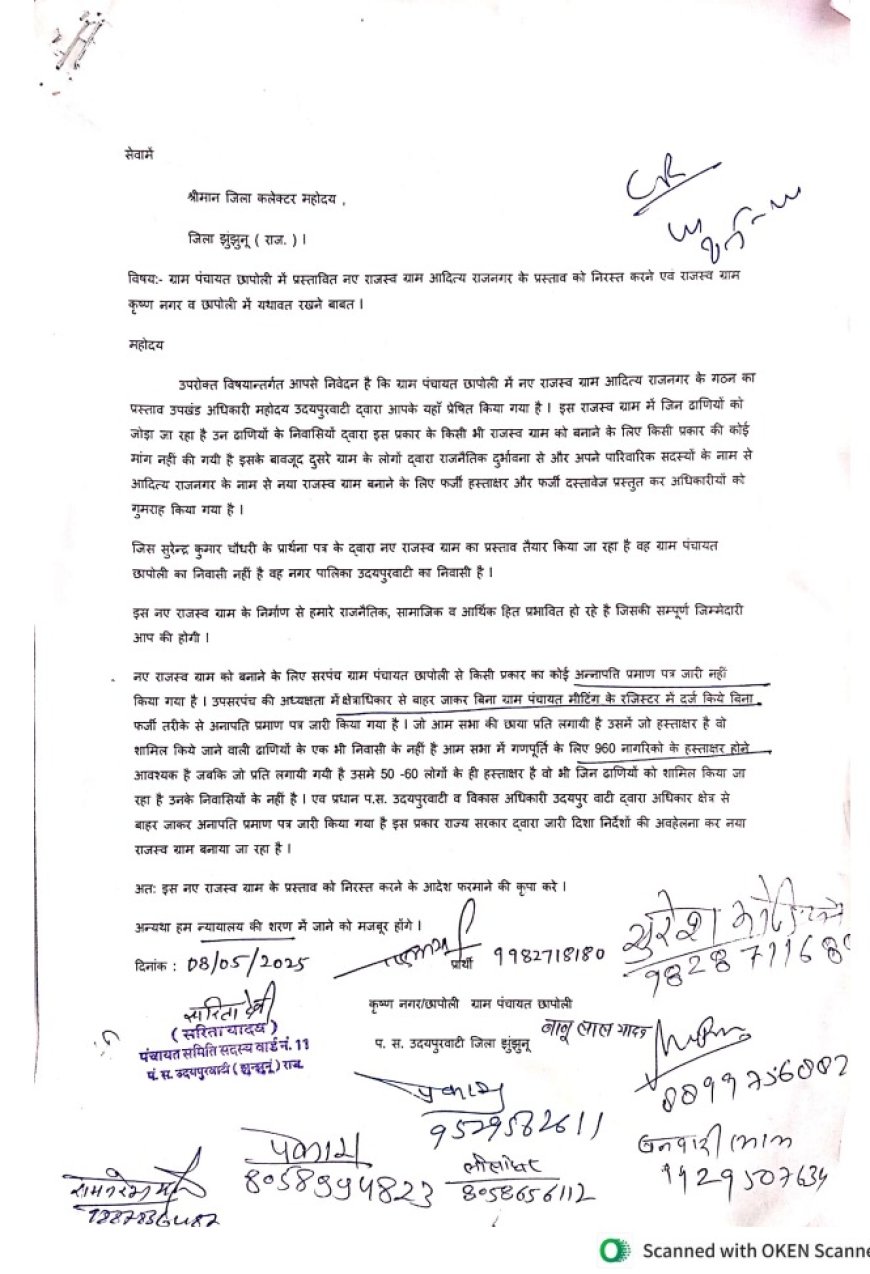 सेवामें
श्रीमान जिला कलेक्टर महोदय ,
जिला झुंझुनू ( राज. ) ।
विषय:- ग्राम पंचायत छापोली में प्रस्तावित नए राजस्व ग्राम आदित्य राजनगर के प्रस्ताव को निरस्त करने एवं राजस्व ग्राम
कृष्ण नगर व छापोली में यथावत रखने बाबत ।
महोदय
उपरोक्त विषयान्तर्गत आपसे निवेदन है कि ग्राम पंचायत छापोली में नए राजस्व ग्राम आदित्य राजनगर के गठन का
प्रस्ताव उपखंड अधिकारी महोदय उदयपुरवाटी द्वारा आपके यहाँ प्रेषित किया गया है । इस राजस्व ग्राम में जिन ढाणियों को
जोड़ा जा रहा है उन ढाणियों के निवासियों द्वारा इस प्रकार के किसी भी राजस्व ग्राम को बनाने के लिए किसी प्रकार की कोई
मांग नहीं की गयी है इसके बावजूद दुसरे ग्राम के लोगों द्वारा राजनैतिक दुर्भावना से और अपने पारिवारिक सदस्यों के नाम से
आदित्य राजनगर के नाम से नया राजस्व ग्राम बनाने के लिए फर्जी हस्ताक्षर और फर्जी दस्तावेज प्रस्तुत कर अधिकारीयों को
गुमराह किया गया है ।
जिस सुरेन्द्र कुमार चौधरी के प्रार्थना पत्र के द्वारा नए राजस्व ग्राम का प्रस्ताव तैयार किया जा रहा है वह ग्राम पंचायत
छापोली का निवासी नहीं है वह नगर पालिका उदयपुरवाटी का निवासी है ।
इस नए राजस्व ग्राम के निर्माण से हमारे राजनैतिक, सामाजिक व आर्थिक हित प्रभावित हो रहे है जिसकी सम्पूर्ण जिम्मेदारी
आप की होगी ।
नए राजस्व ग्राम को बनाने के लिए सरपंच ग्राम पंचायत छापोली से किसी प्रकार का कोई अन्नापति प्रमाण पत्र जारी नहीं
किया गया है । उपसरपंच की अध्यक्षता में क्षेत्राधिकार से बाहर जाकर बिना ग्राम पंचायत मीटिंग के रजिस्टर में दर्ज किये बिना
फर्जी तरीके से अनापति प्रमाण पत्र जारी किया गया है । जो आम सभा की छाया प्रति लगायी है उसमें जो हस्ताक्षर है वो
शामिल किये जाने वाली ढाणियों के एक भी निवासी के नहीं है आम सभा में गणपूर्ति के लिए 960 नागरिको के हस्ताक्षर होने
आवश्यक है जबकि जो प्रति लगायी गयी है उसमे 50 -60 लोगों के ही हस्ताक्षर है वो भी जिन ढाणियों को शामिल किया जा
रहा है उनके निवासियों के नहीं है । एव प्रधान प.स. उदयपुरवाटी व विकास अधिकारी उदयपुर वाटी द्वारा अधिकार क्षेत्र से
बाहर जाकर अनापति प्रमाण पत्र जारी किया गया है इस प्रकार राज्य सरकार द्वारा जारी दिशा निर्देशों की अवहेलना कर नया
राजस्व ग्राम बनाया जा रहा है ।
अत: इस नए राजस्व ग्राम के प्रस्ताव को निरस्त करने के आदेश फरमाने की कृपा करे ।
अन्यथा हम न्यायालय की शरण में जाने को मजबूर होंगे ।
सुरेश
दिनांक : 08/05/2025 प्रार्थी 9982718180
कृष्ण नगर/छापोली ग्राम पंचायत छापोली
सरिता देवी
(सरिता यादव)
बाबू लाल यादव
प. स. उदयपुरवाटी जिला झुंझुनू
पंचायत समिति सदस्य वार्ड नं. 11
पं. स. उदयपुरवाटी (झुन्झुनूं) राज.
प्रकाश
9529582611
प्रकाश
8058994823
लीलाधर
8058656112
बनवारी लाल
9929507634
Scanned with OKEN Scanne